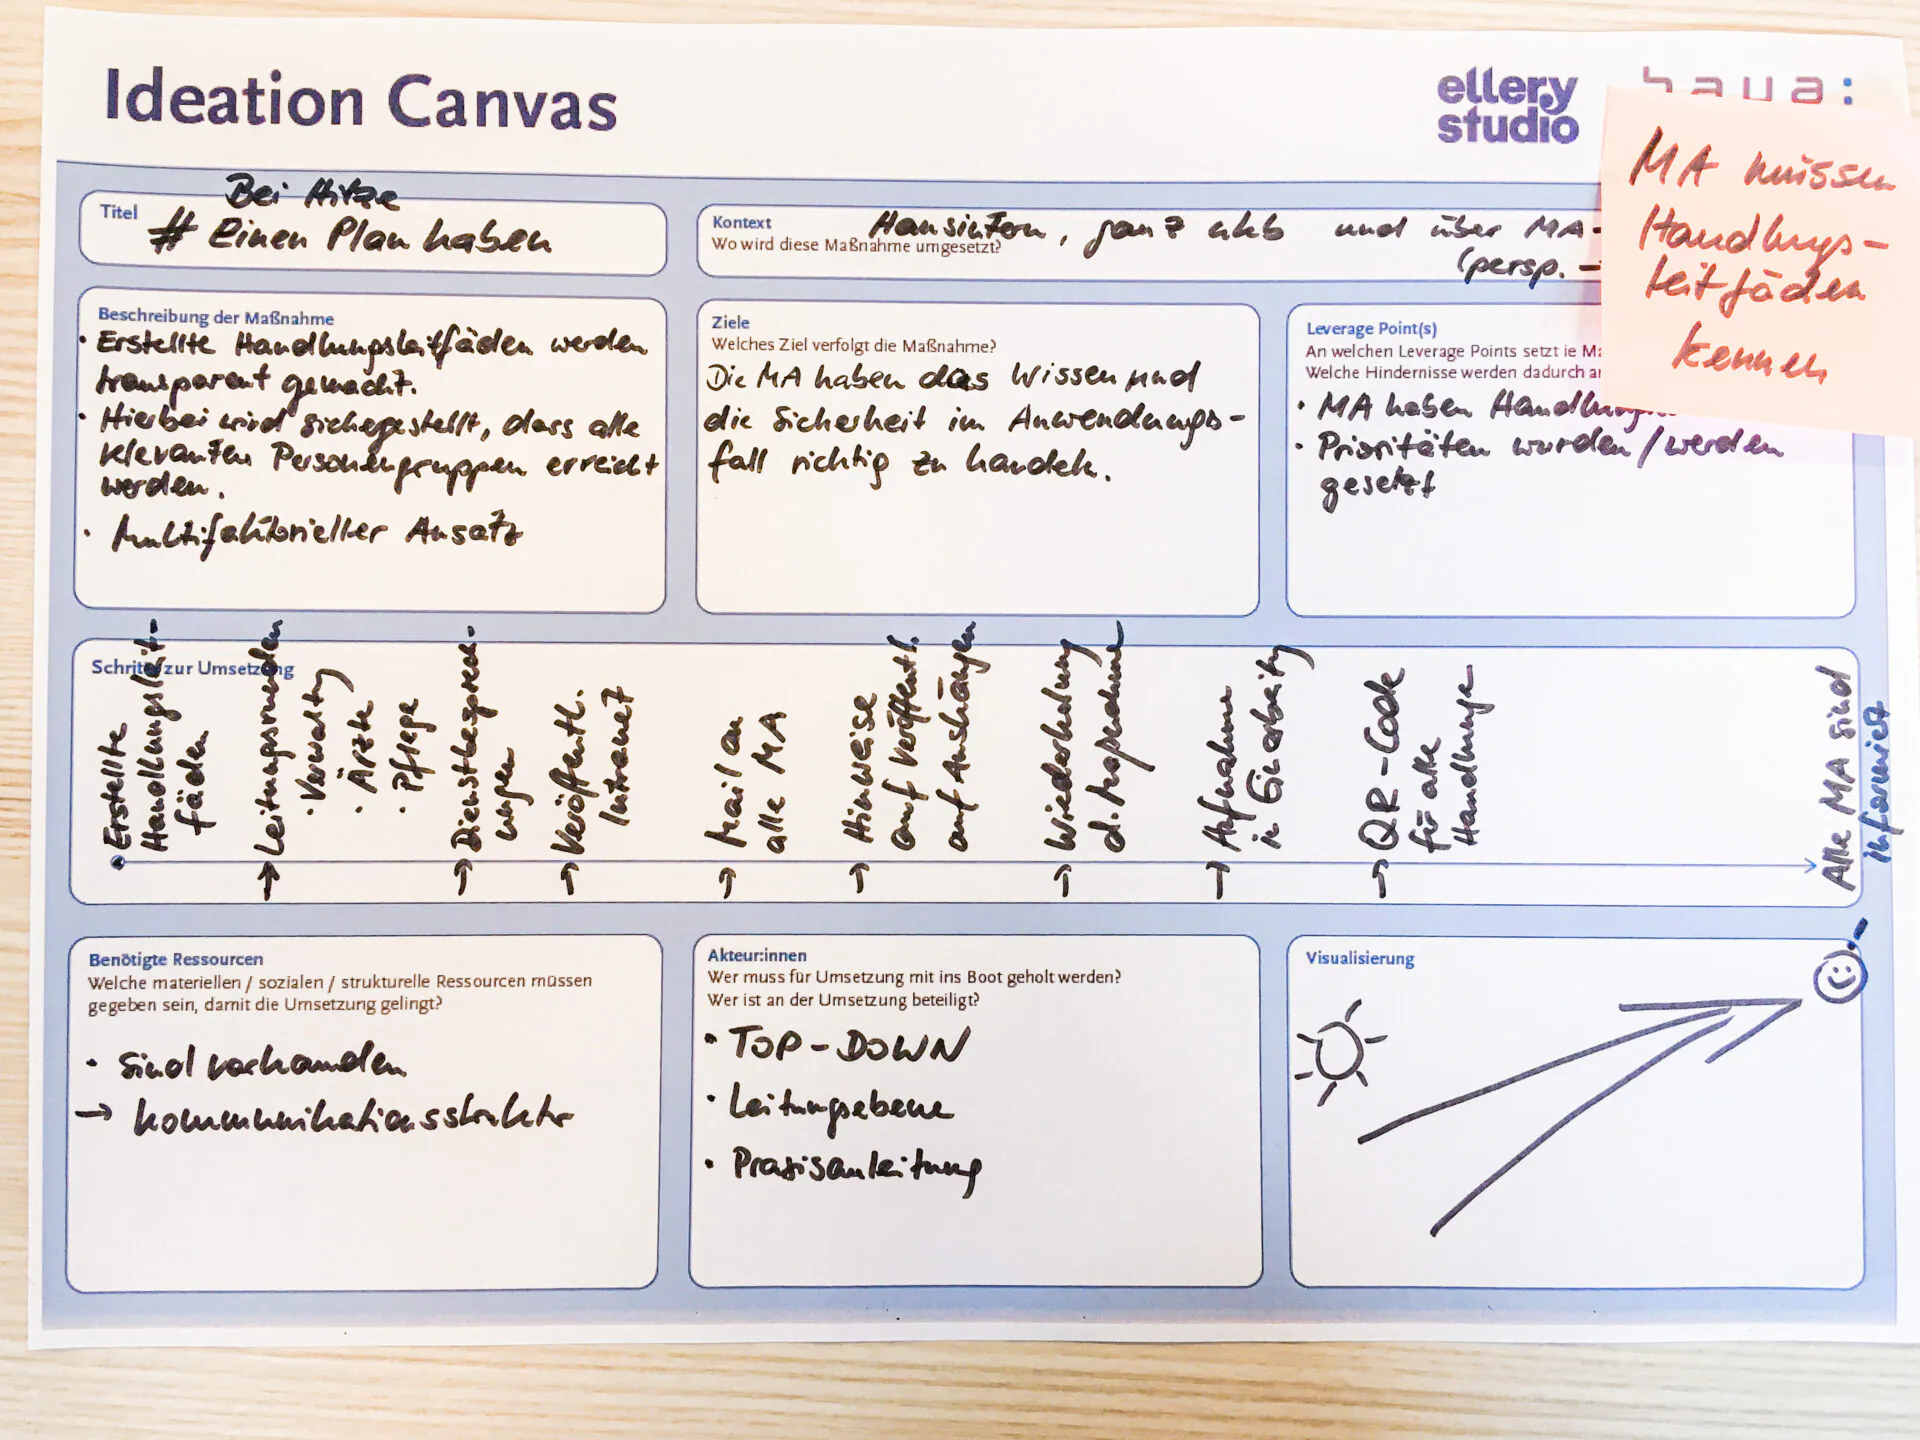 Ideation Canvas
ellery
studio
haua:
MA müssen
Handlungs-
leitfäden
kennen
Titel
Bei Hitze
# Einen Plan haben
Kontext
Wo wird diese Maßnahme umgesetzt?
Hausintern, ganz ukb und über MA-
(persp. -
Beschreibung der Maßnahme
· Erstellte Handlungsleitfäden werden
transparent gemacht.
· Hierbei wird sichegestellt, dass alle
relevanten Personengruppen erreicht
werden.
· Multifaktorieller Ansatz
Ziele
Welches Ziel verfolgt die Maßnahme?
Die MA haben das Wissen und
die Sicherheit im Anwendungs-
fall richtig zu handeln.
Leverage Point(s)
An welchen Leverage Points setzt ie
Welche Hindernisse werden dadurch
· MA haben
· Prioritäten wurden/werden
gesetzt
Schritte zur Umsetzung
Erstellte
Handlungsleit-
fäden
→ Leitungsrunden
· Verwaltg
· Ärzte
· Pflege
→ Dienstbesprech-
ungen
→ Veröffentl.
Intranet
→ Mail an
alle MA
→ Hinweise
auf Veröffentl.
auf Aushängen
→ Wiederholung
d. Maßnahme
→ Aufnahme
in Einarbeitg
→ QR-Code
für alle
Handlunge
Alle MA sind
informiert
Benötigte Ressourcen
Welche materiellen / sozialen / strukturelle Ressourcen müssen
gegeben sein, damit die Umsetzung gelingt?
· sind vorhanden
→ Kommunikationsstruktur
Akteur:innen
Wer muss für Umsetzung mit ins Boot geholt werden?
Wer ist an der Umsetzung beteiligt?
· TOP-DOWN
· Leitungsebene
· Praxisanleitung
Visualisierung